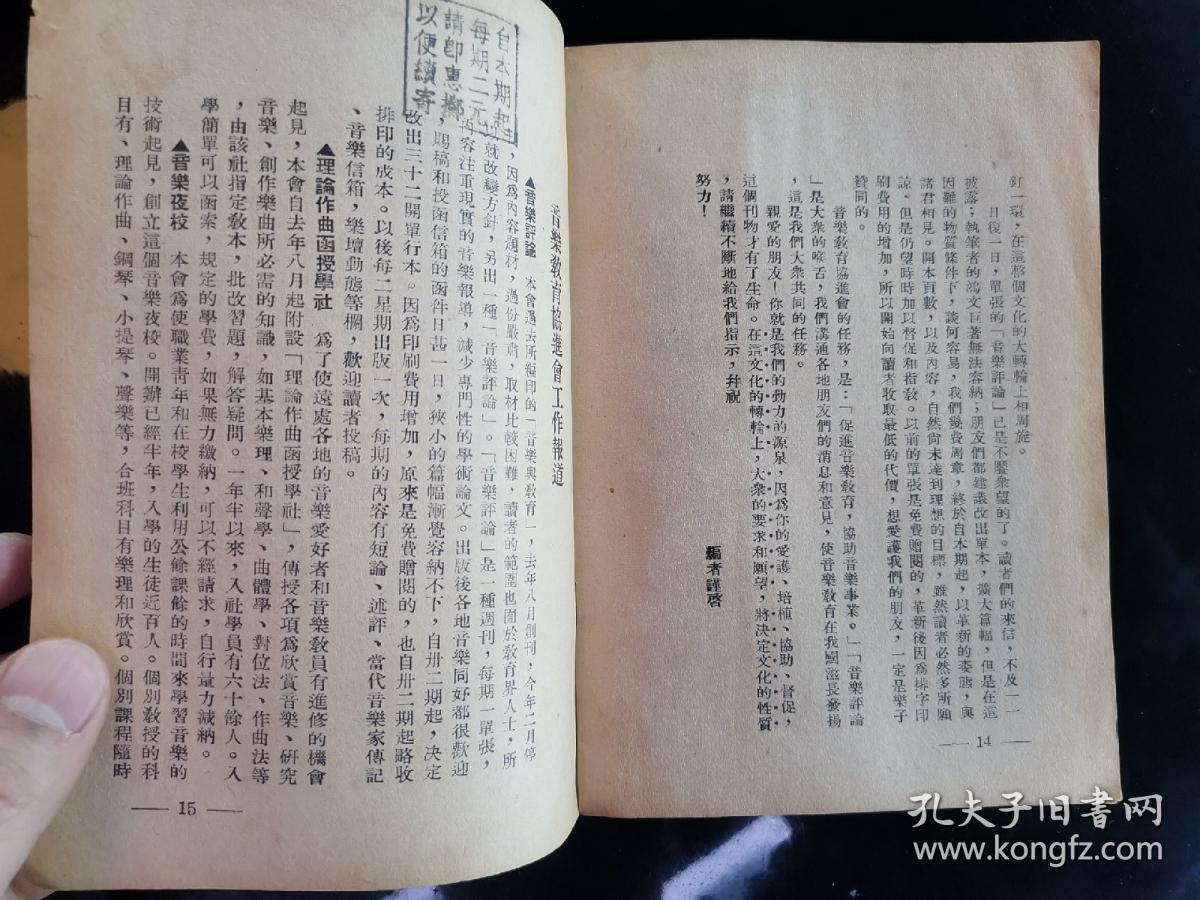 釘一環，在這整個文化的大轉輪上周旋。
日復一日，單張的「音樂評論」已是不饜衆望的了。讀者們的來信，不及一一
披露；執筆者的鴻文巨著無法容納；朋友們都建議改出單本，擴大篇幅，但是在這
困難的物質條件下，談何容易，我們幾費周章，終於自本期起，以革新的姿態，與
諸君相見。開本頁數，以及內容，自然尙未達到理想的目標，雖然讀者必然多所願
諒，但是仍望時時加以督促和指敎。以前的單張是免費贈閱的，革新後因爲排字印
刷費用的增加，所以開始向讀者收取最低的代價，想愛護我們的朋友，一定是樂予
贊同的。
音樂敎育協進會的任務，是：「促進音樂敎育，協助音樂事業。」「音樂評論
」是大衆的喉舌，我們溝通各地朋友們的消息和意見，使音樂敎育在我國滋長發揚
，這是我們大衆共同的任務。
親愛的朋友！你就是我們的動力的源泉，因爲你的愛護、培植、協助、督促，
這個刊物才有了生命。在這文化的轉輪上，大衆的要求和願望，將決定文化的性質
，請繼續不斷地給我們指示，幷祝
努力！
編者謹啓
— 14 —
自本期起
每期二元
請卽惠擲
以便續寄
音樂敎育協進會工作報道
▲音樂評論　本會過去所編印的「音樂與敎育」，去年八月創刊，今年二月停
，因爲內容題材，過份嚴肅，取材比較困難，讀者的範圍也囿於敎育界人士，所
就改變方針，另出一種「音樂評論」。「音樂評論」是一種週刊，每期一單張，
內容注重現實的音樂報導，減少專門性的學術論文。出版後各地音樂同好都很歡迎
，賜稿和投函信箱的函件日甚一日，狹小的篇幅漸覺容納不下，自卅二期起，決定
改出三十二開單行本。因爲印刷費用增加，原來是免費贈閱的，也自卅二期起略收
排印的成本。以後每二星期出版一次，每期的內容有短論、述評、當代音樂家傳記
、音樂信箱，樂壇動態等欄，歡迎讀者投稿。
▲理論作曲函授學社　爲了使遠處各地的音樂愛好者和音樂敎員有進修的機會
起見，本會自去年八月起附設「理論作曲函授學社」，傳授各項爲欣賞音樂、硏究
音樂、創作樂曲所必需的知識，如基本樂理、和聲學、曲體學、對位法、作曲法等
，由該社指定敎本，批改習題，解答疑問。一年半以來，入社學員有六十餘人。入
學簡單可以函索，規定的學費，如果無力繳納，可以不經請求，自行量力減納。
▲音樂夜校　本會爲使職業靑年和在校學生利用公餘課餘的時間來學習音樂的
技術起見，創立這個音樂夜校。開辦已經半年，入學的生徒近百人。個別敎授的科
目有、理論作曲、鋼琴、小提琴、聲樂等，合班科目有樂理和欣賞。個別課程隨時
— 15 —
孔夫子旧书网
www.kongfz.com